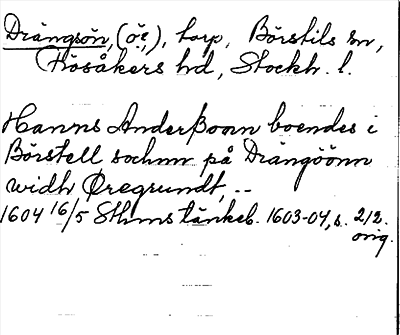 Drängsön, (Öe,), torp, Börstils sn,
Frösåkers hd, Stockh. l.
Hanns Anderßonn boendes i
Börstell sochnn på Drängöönn
widh Øregrundt, --
1604 16/5 Sthms tänkeb. 1603-04, s. 212.
orig.